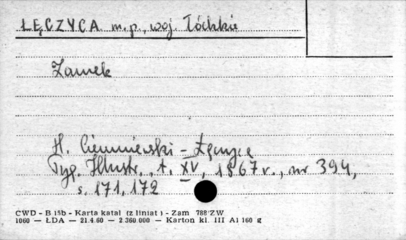 ŁĘCZYCA m.p., woj. Łódzkie
Zamek
H. Cieumiewski - Łęczyca
Tyg. Illustr., t. XV, 1867 r., nr 394,
s. 171, 172
CWD - B 15b - Karta katal (z liniat) - Zam 788 ZW
1060 — ŁDA — 21.4.60 — 2.360.000 — Karton kl. III A1 160 g